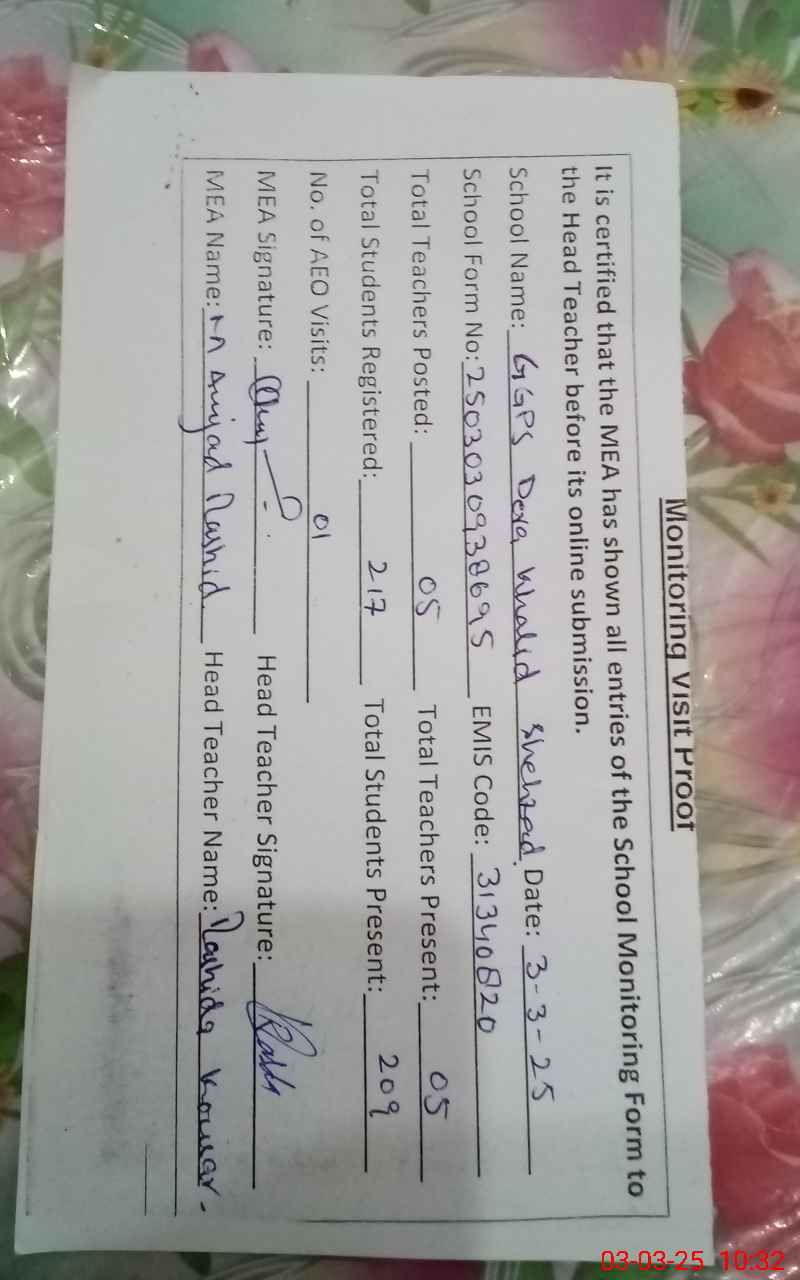 Monitoring Visit Proof
It is certified that the MEA has shown all entries of the School Monitoring Form to
the Head Teacher before its online submission.
School Name: GGPS Dera Khalid Shehzad Date: 3-3-25
School Form No: 2503030938695 EMIS Code: 31340820
Total Teachers Posted: 05 Total Teachers Present: 05
Total Students Registered: 217 Total Students Present: 209
No. of AEO Visits: 01
MEA Signature: Head Teacher Signature:
MEA Name: M Amjad Rashid Head Teacher Name: Rashida Kousar.
03-03-25 10:32